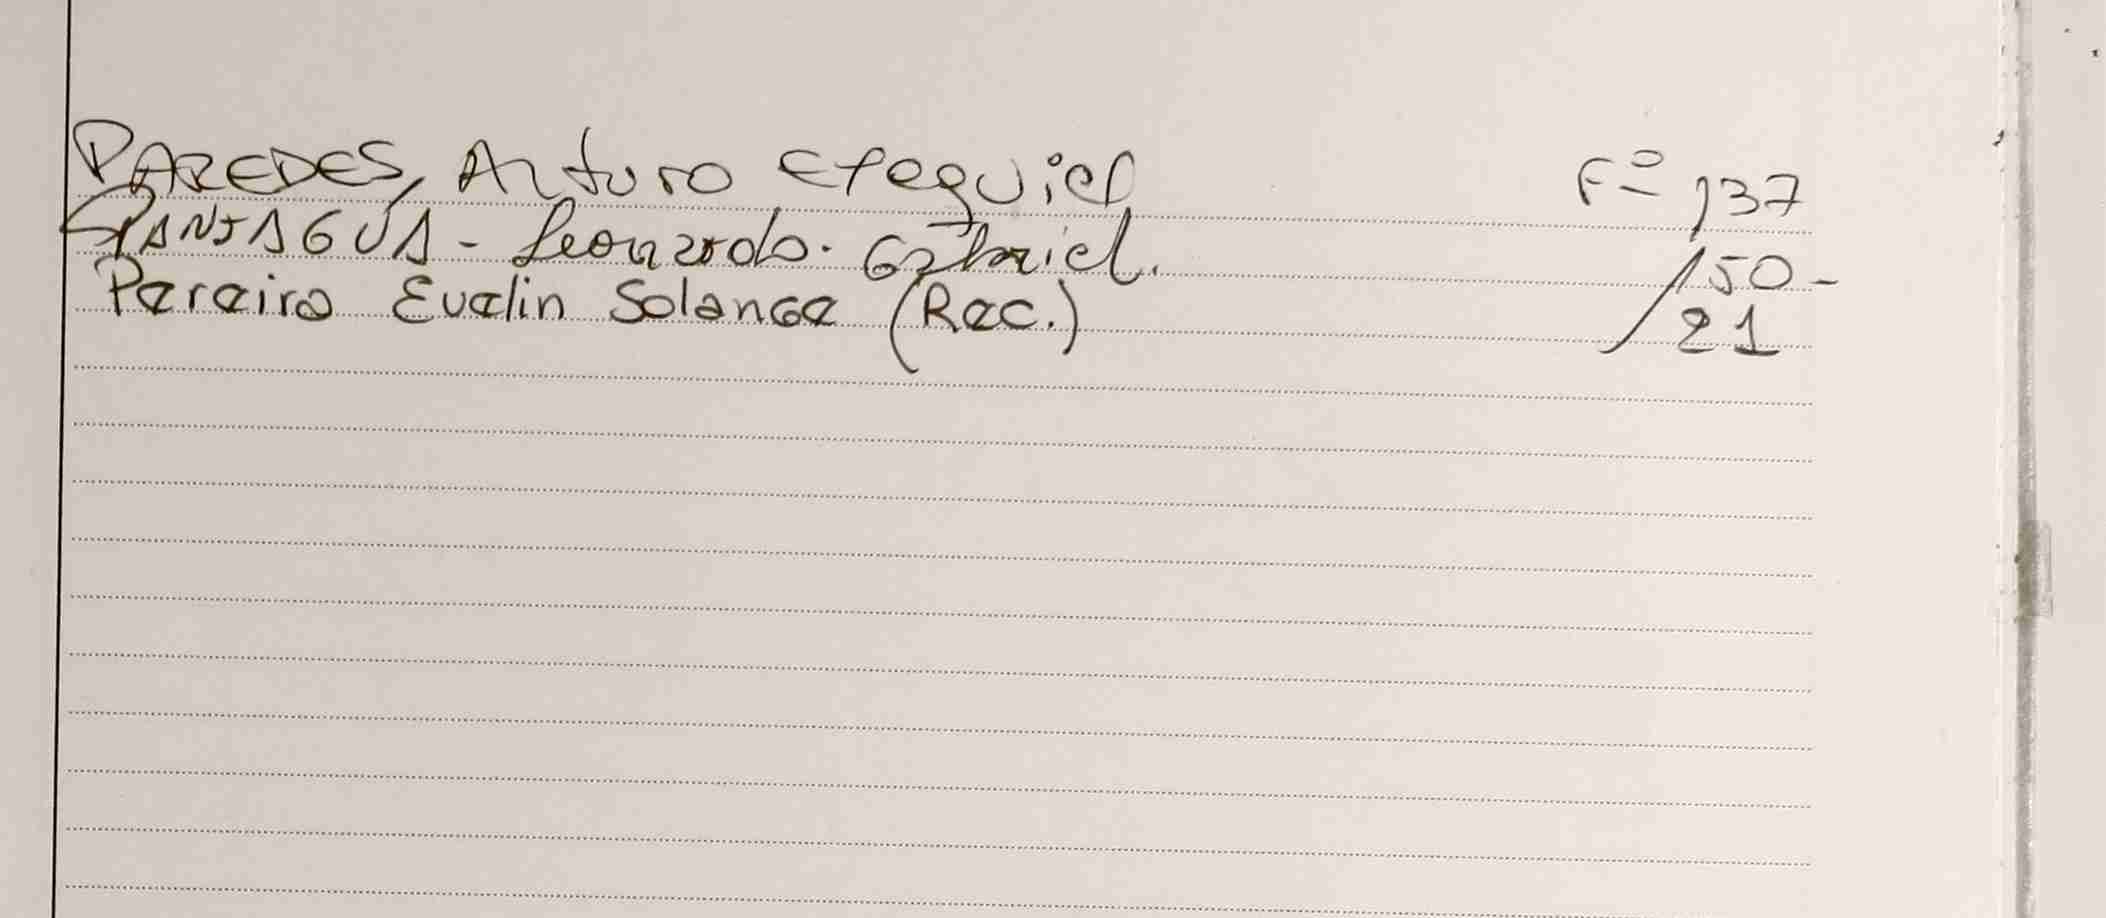 PAREDES, Arturo Ezequiel Fº 137
PANIAGUA - Leonardo. Gabriel. 150-
Pereira Evelin Solange (Rec.) 21